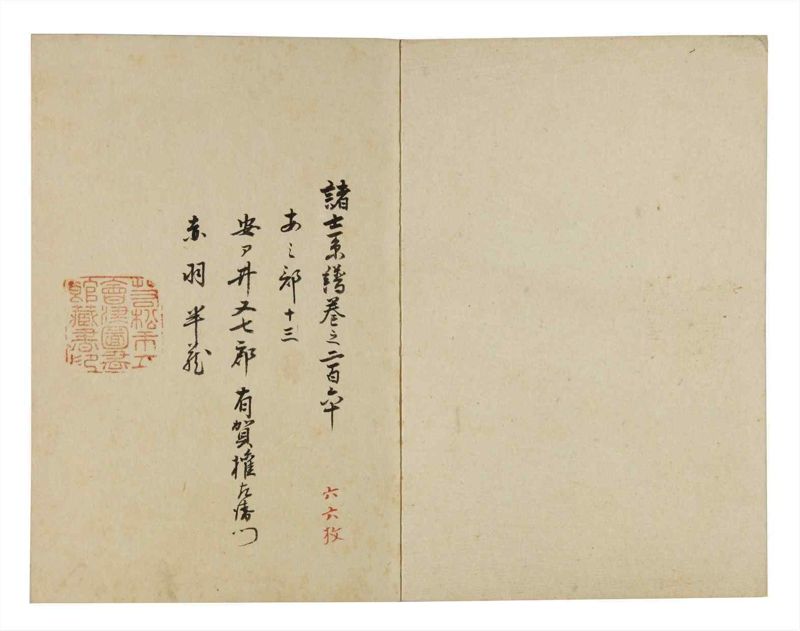 諸士系譜巻之二百六十
六六枚
あ之部十三
安部井又七郎 有賀権左衛門
赤羽半蔵
若松市立
會津圖書
館藏書印